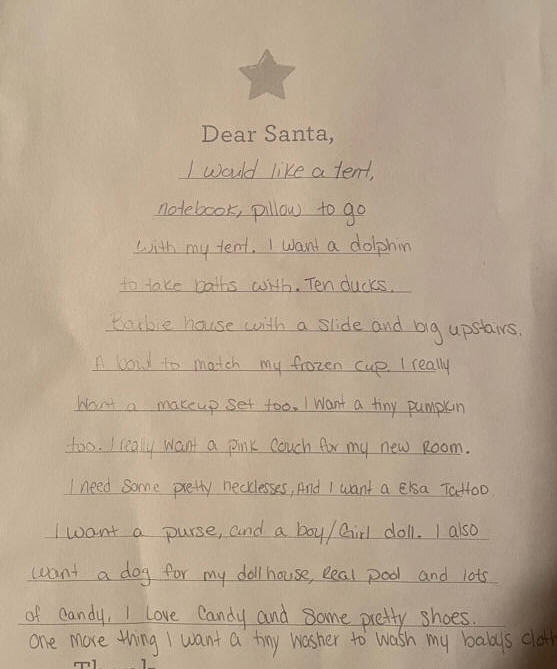 Dear Santa,
I would like a tent,
notebook, pillow to go
with my tent. I want a dolphin
to take baths with. Ten ducks.
Barbie house with a slide and big upstairs.
A bowl to match my frozen cup. I really
Want a makeup set too. I want a tiny pumpkin
too. I really want a pink couch for my new room.
I need some pretty necklesses, And I want a Elsa Tattoo
I want a purse, and a boy/Girl doll. I also
want a dog for my dollhouse, Real pool and lots
of candy, I Love Candy and some pretty shoes.
One more thing I want a tiny washer to wash my babys